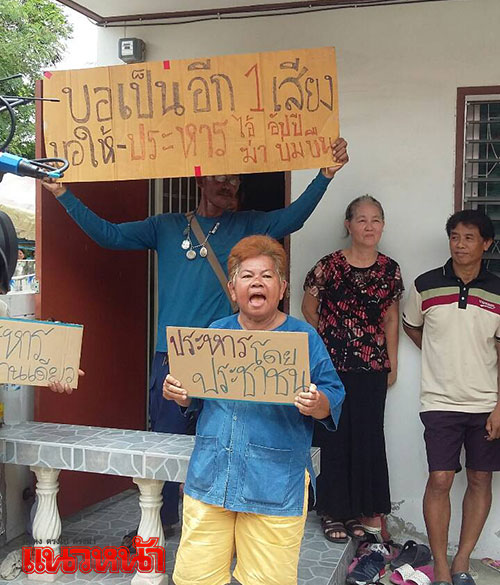 ขอเป็นอีก 1 เสียง
ขอให้-ประหาร ไอ้ อัปปี
ฆ่า ข่มขืน
ประหาร โดย
ประชาชน
หาร
านเดียว
แนวหน้า